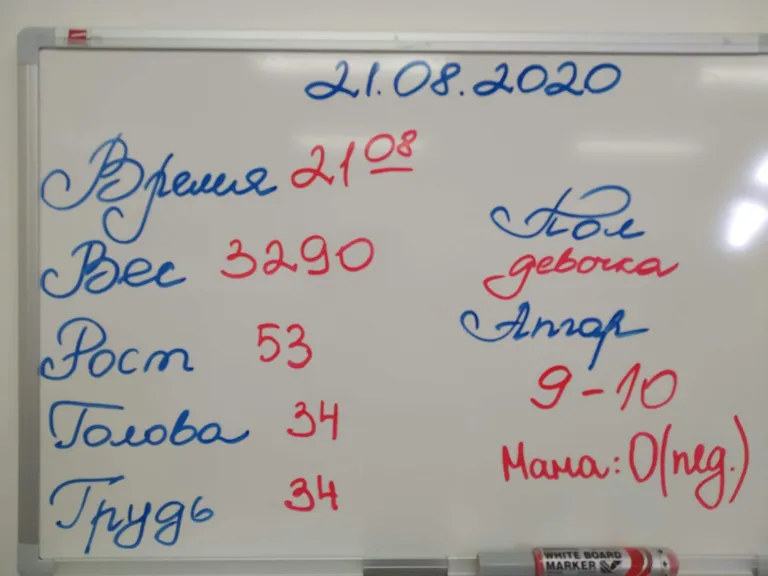 21.08.2020
Время 21 08
Вес 3290
Рост 53
Голова 34
Грудь 34
Пол
девочка
Апгар
9-10
Мама: 0(пед.)
WHITE BOARD
MARKER